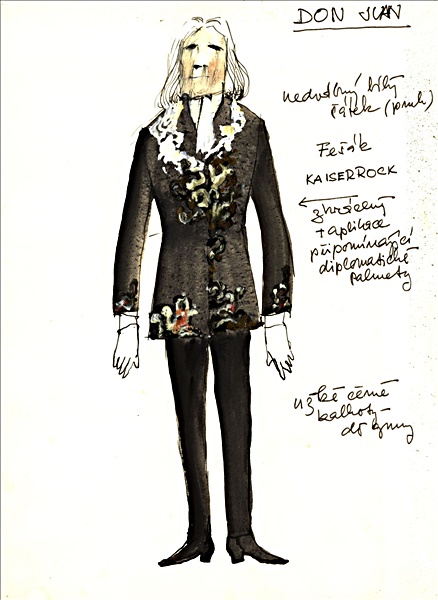 DON JUAN
nedvábný bílý
šátek (pruh)
Fešák
KAISERROCK
zkrácený
+ aplikace
připomínající
diplomatické
palmety
úzké černé
kalhoty
do gumy